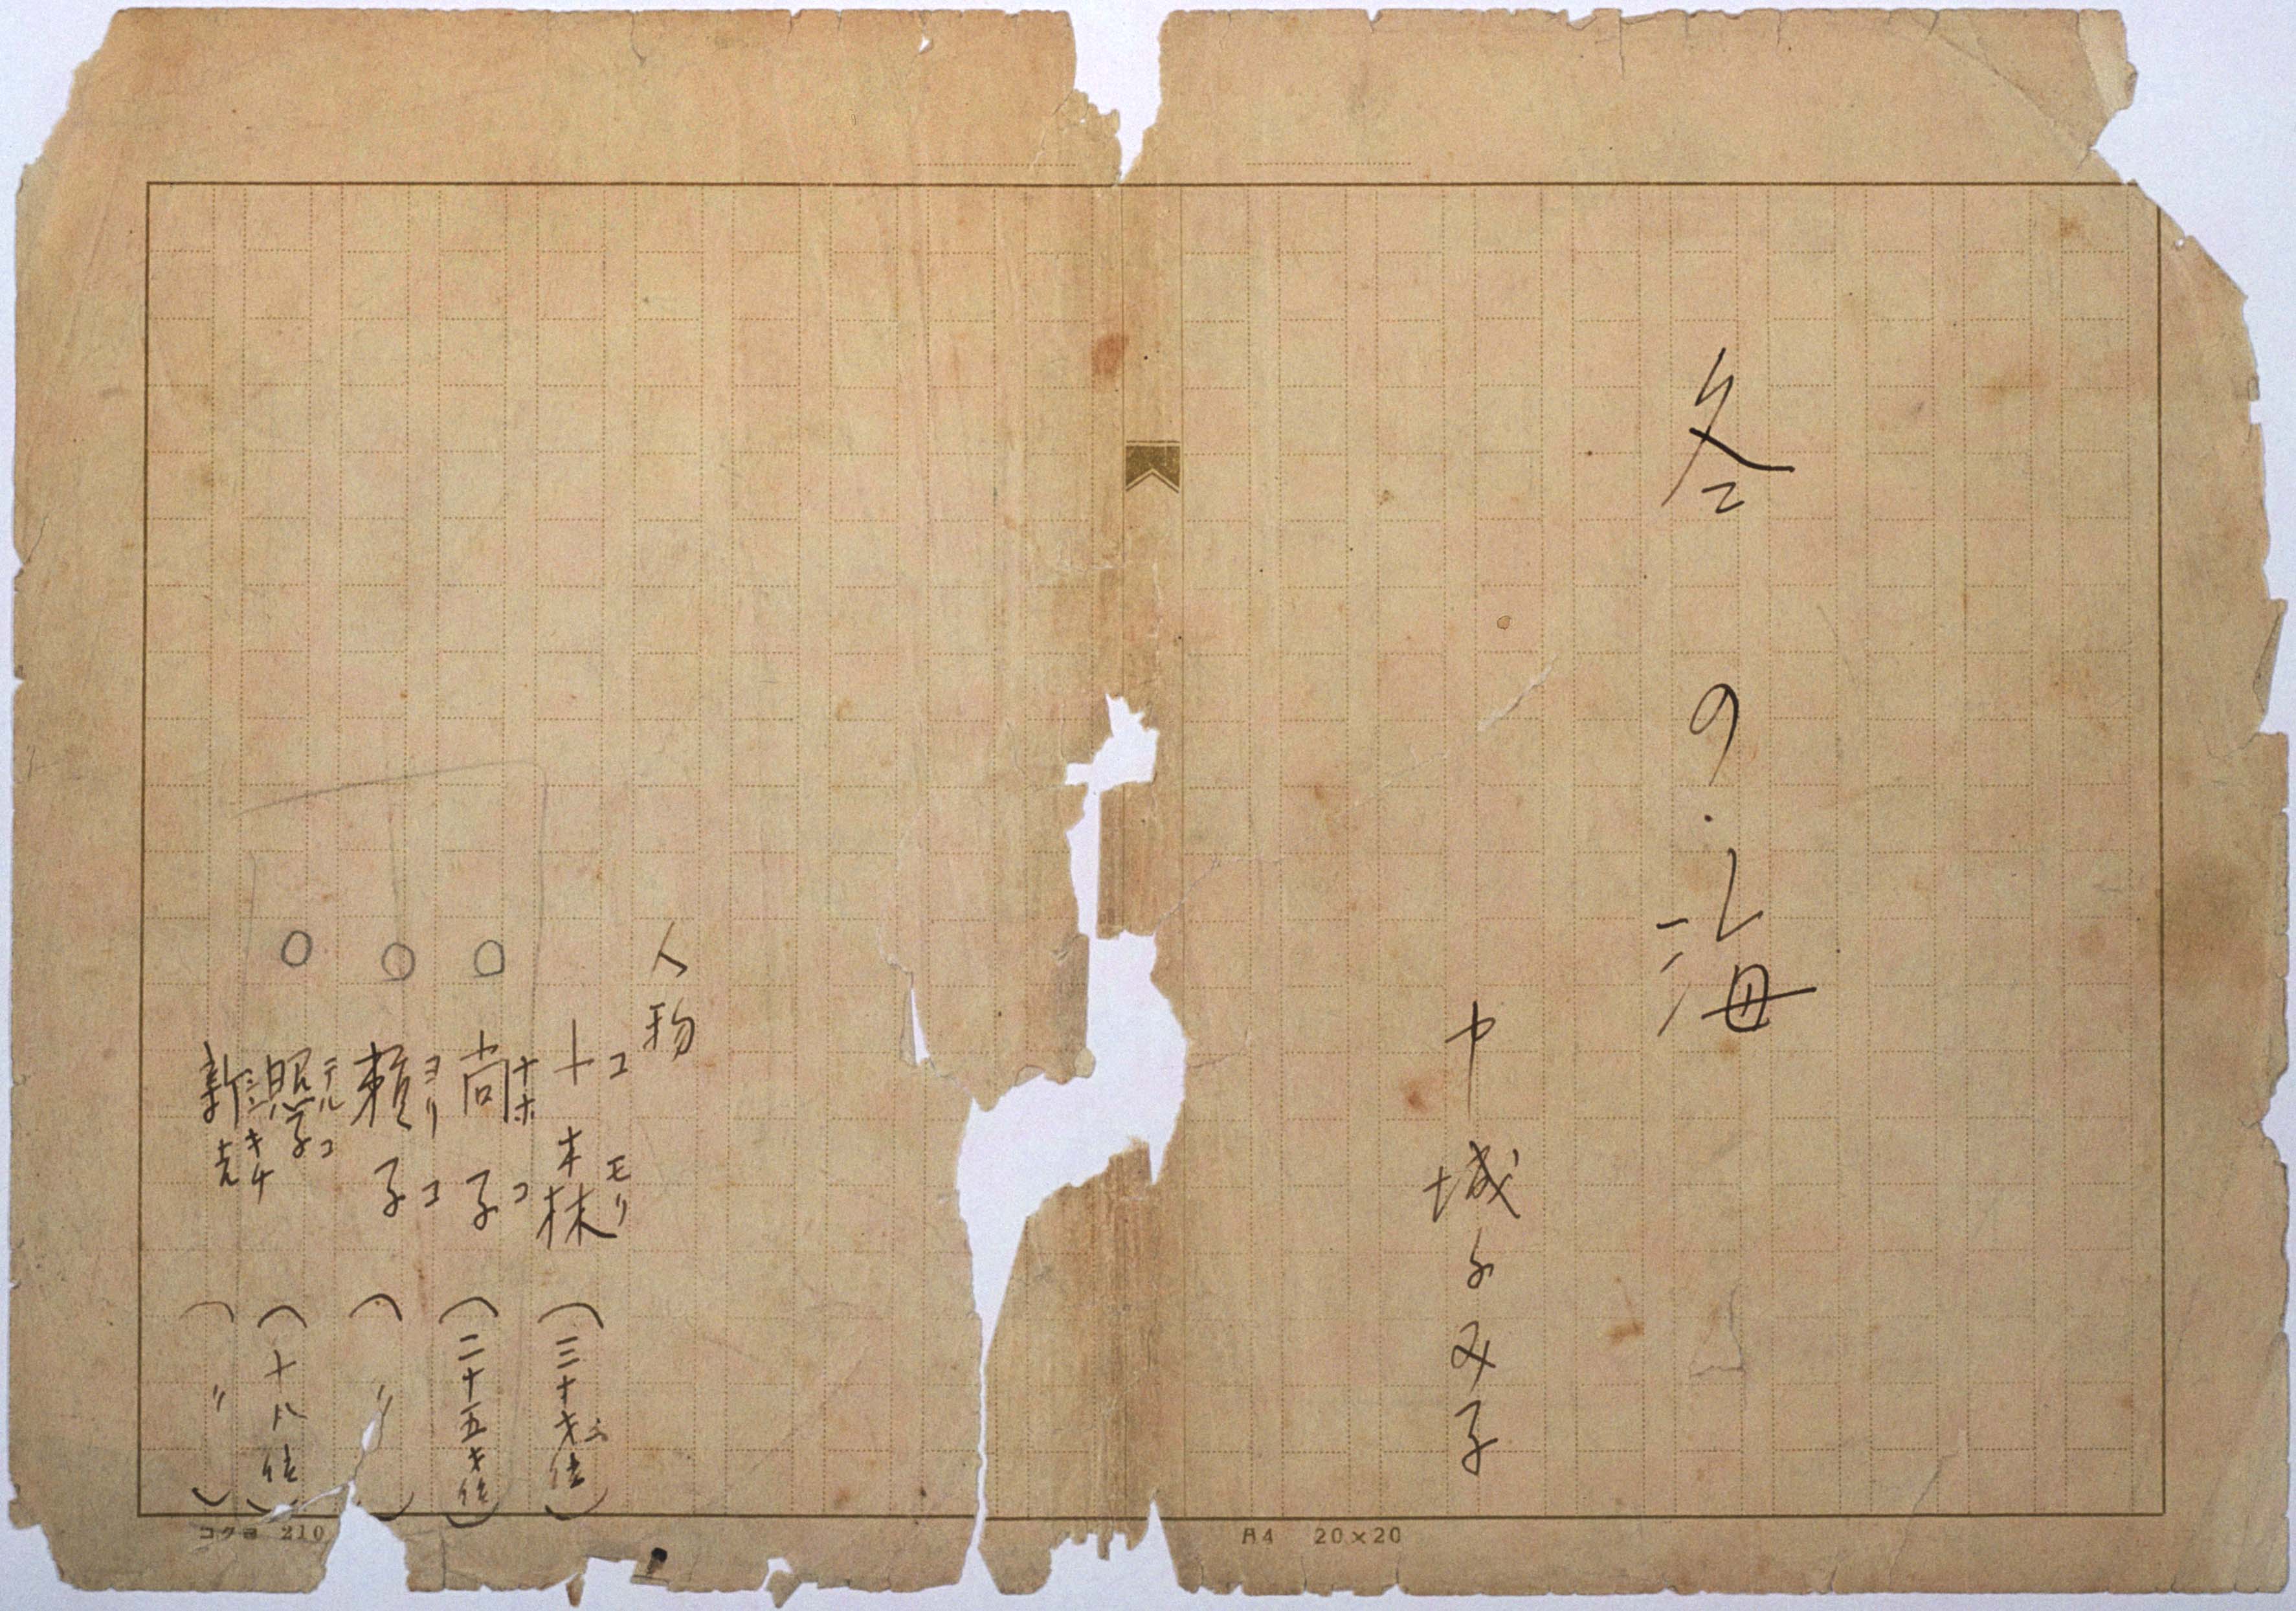 冬の海
中城ふみ子
人物
コモリ
小森 (三十才位)
ナホコ
尚子 (二十五才位)
ヨリコ
頼子 (〃)
テルコ
照子 (十八位)
シンキチ
新吉 (〃)
A4 20×20
コクヨ 210